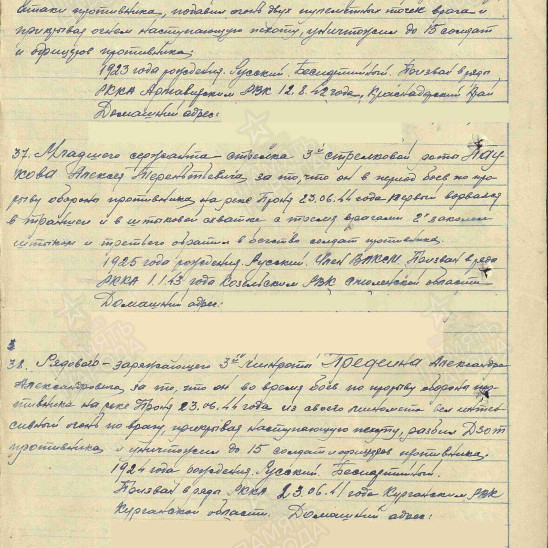 атаки противника, подавил огонь двух пулеметных точек врага и
прикрывая огнем наступающую пехоту, уничтожил до 15 солдат
и офицеров противника.
1923 года рождения. Русский. Беспартийный. Призван в ряды
РККА Армавирским РВК 12.8.42 года, Краснодарский Край
Домашний адрес:
37. Младшего сержанта стрелка 3й стрелковой роты Пау
кова Алексея Терентьевича, за то, что он в период боев по про-
рыву обороны противника, на реке Проня 23.06.44 года первый ворвался
в траншеи и в штыковой схватке с тремя врагами 2х заколол
штыком и третьего обратил в бегство солдат противника.
1925 года рождения. Русский. Член ВЛКСМ. Призван в ряды
РККА 1.1.43 года Козельским РВК Смоленской области
Домашний адрес:
38. Рядового - заряжающего 3й минроты Предеина Александра
Александровича, за то, что он во время боев по прорыву обороны про
тивника на реке Проня 23.06.44 года из своего миномета вел интен-
сивный огонь по врагу, прикрывая наступающую пехоту, разбил Дзот
противника и уничтожил до 15 солдат и офицеров противника.
1924 года рождения. Русский. Беспартийный.
Призван в ряды РККА 23.06.41 года Курганским РВК
Курганской области. Домашний адрес: